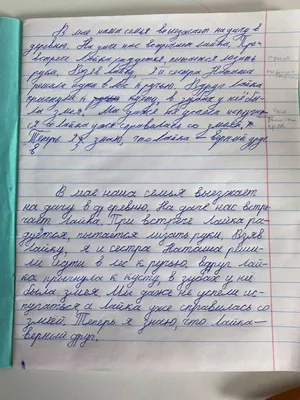 В мае наша семья выезжает на дачу в
деревню. На даче нас встречает лайка. При
встрече Лайка радуется, пытается лизать
руки. Взяв Лайку, я и сестра Наташа
решили идти в лес к ручью. Вдруг лайка
прыгнула к кусту, в зубах у неё бы
ла змея. Мы даже не успели испугать
ся а Лайка уже справилась со змеёй.
Теперь я знаю, что Лайка верный друг
В мае наша семья выезжает
на дачу в деревню. На даче нас встре
чает лайка. При встрече лайка ра
дуется, пытается лизать руки. Взяв
лайку, я и сестра Наташа реши
ли идти в лес к ручью, вдруг лай
ка прыгнула к кусту, в зубах у неё
была змея. Мы даже не успели ис
пугаться а лайка уже справилась со
змеёй. Теперь я знаю, что лайка-
верный друг.